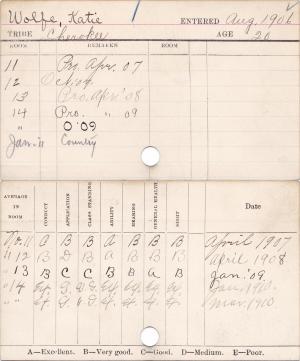 Wolfe, Katie
ENTERED Aug. 1906
TRIBE Cherokee
AGE 20
ROOM REMARKS ROOM
11 Pro. Apr. 07
12 Oct. 07
13 Pro. Apr. '08
14 Pro. " 09
" 0.09
Jan-11 Country
AVERAGE IN ROOM CONDUCT APPLICATION CLASS STANDING ABILITY MEANING GENERAL HEALTH SIGHT Date
No. 11 A B B A B B A April 1907
" 12 B D B A B B B April 1908
" 13 B C C B B A B Jan. '09
" 14 Jan. 1910
" " Mar. 1910
A—Excellent. B—Very good. C—Good. D—Medium. E—Poor.